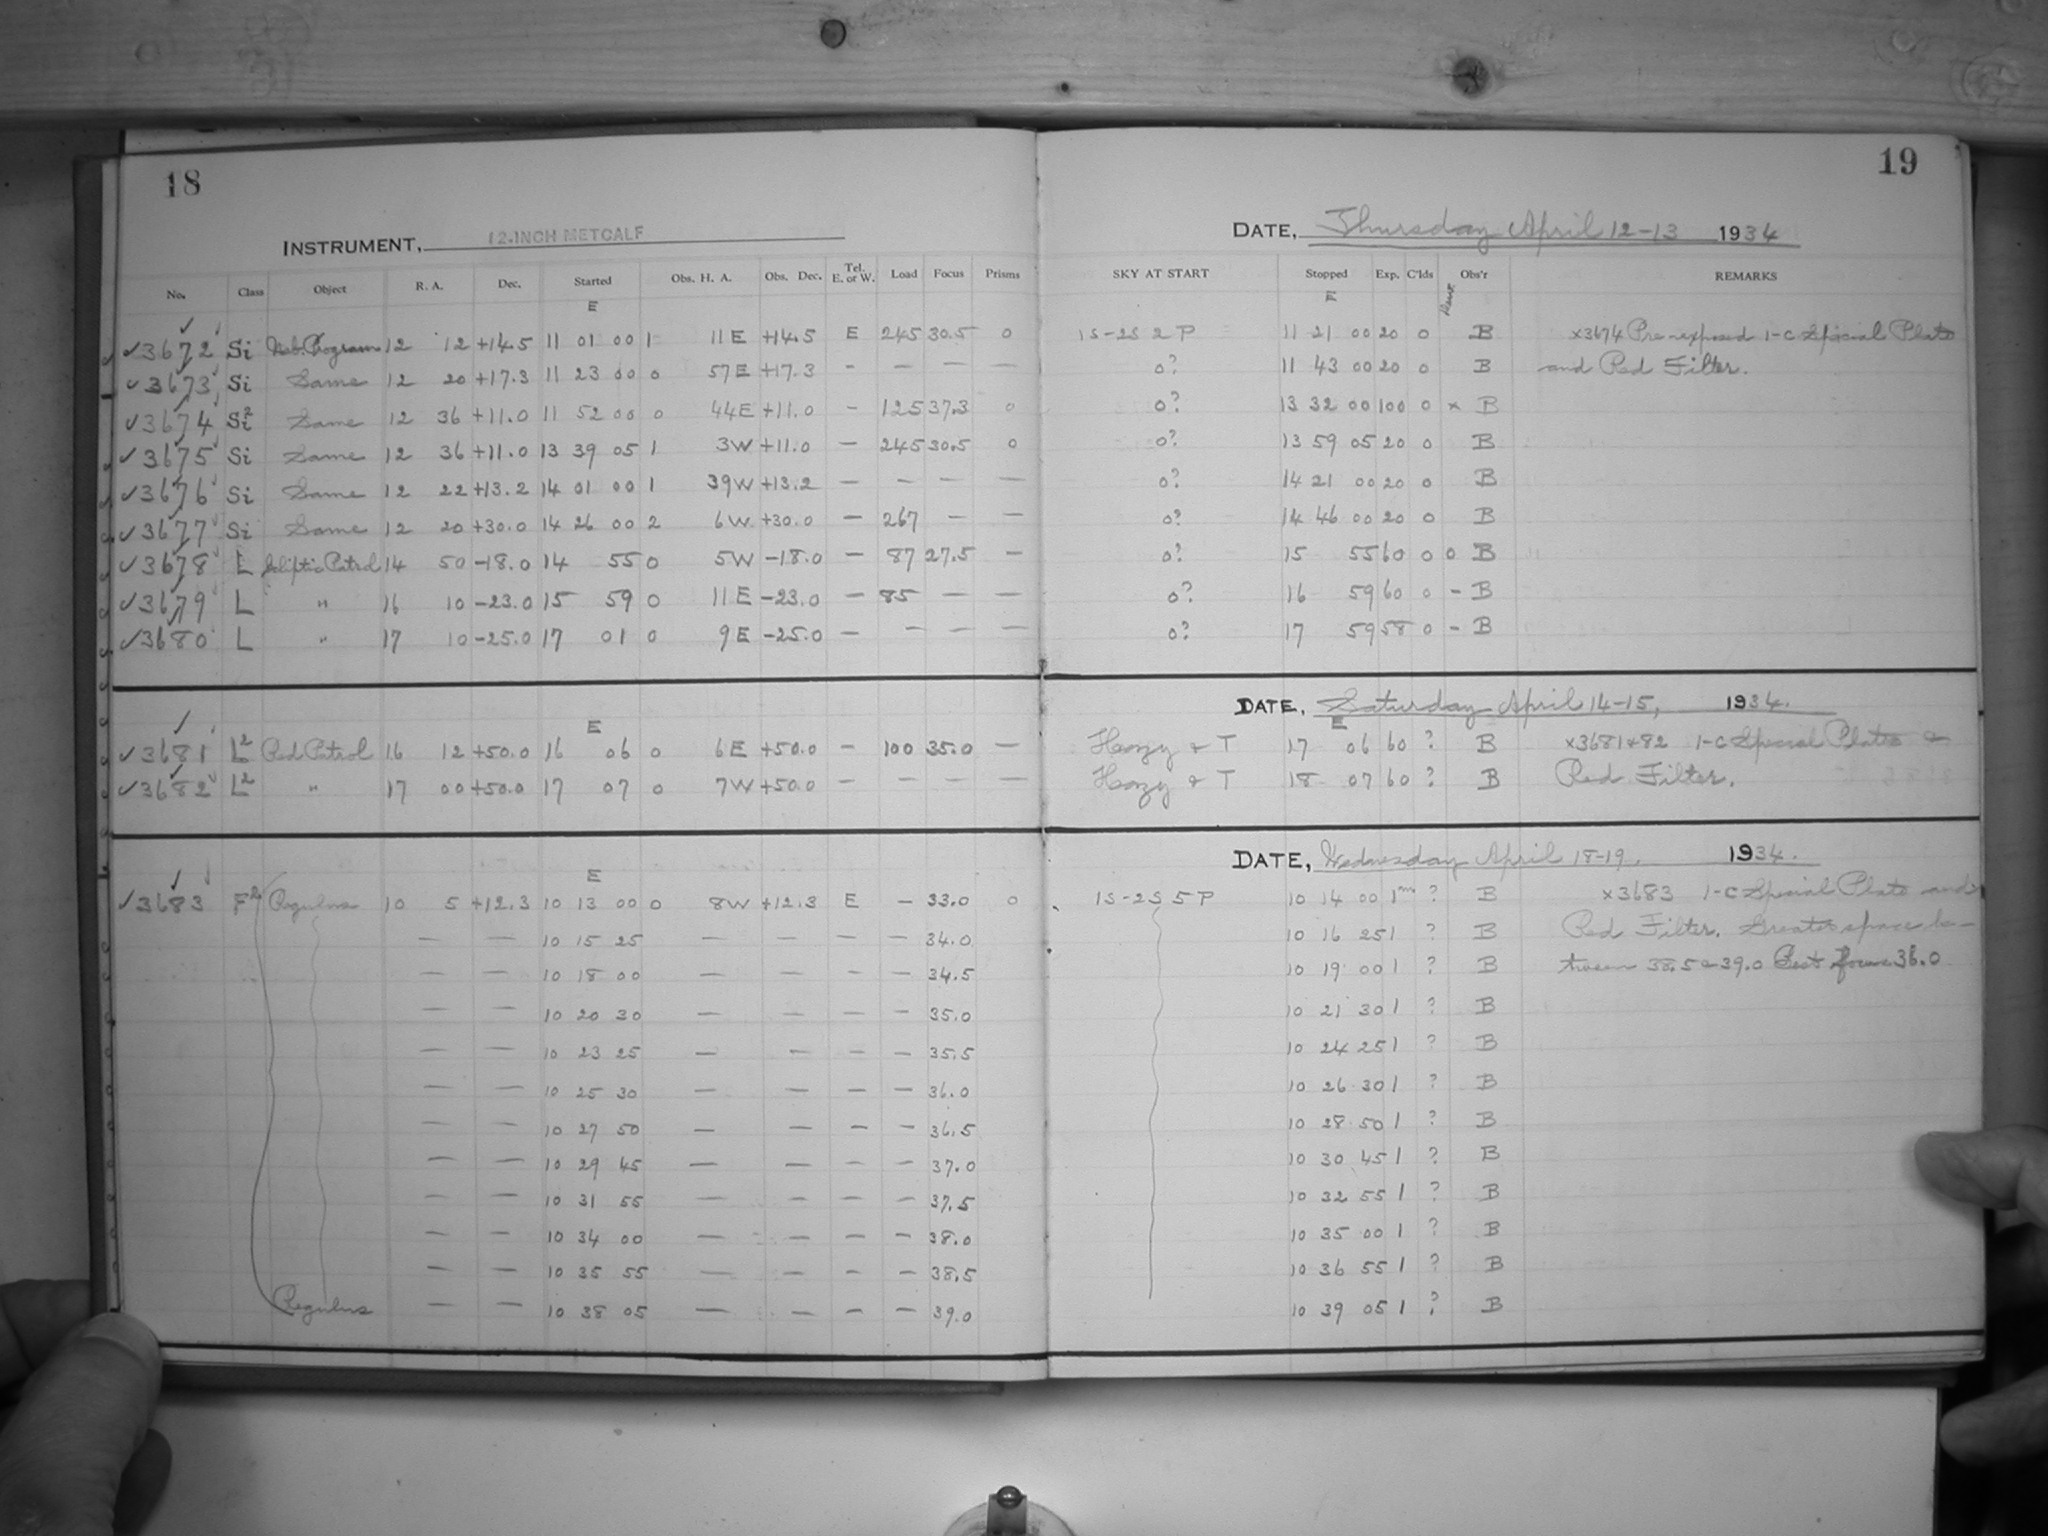 18
19
INSTRUMENT, 12-INCH METCALF
DATE, Thursday April 12-13 1934
No. Class Object R. A. Dec. Started Obs. H. A. Obs. Dec. Tel. E. or W. Load Focus Prisms SKY AT START Stopped Exp. C'lds Obs'r REMARKS
E E
✓3672 Si Neb. Program 12 12 +14.5 11 01 00 1 11 E +14.5 E 245 30.5 0 1S-2S 2 P 11 21 00 20 0 B x3674 Pre-exposed 1-C Special Plate
✓3673 Si Same 12 20 +17.3 11 23 00 0 57 E +17.3 - - - - 0? 11 43 00 20 0 B and Red Filter.
✓3674 Si² Same 12 36 +11.0 11 52 00 0 44 E +11.0 - 125 37.3 0 0? 13 32 00 100 0 x B
✓3675 Si Same 12 36 +11.0 13 39 05 1 3 W +11.0 - 245 30.5 0 0? 13 59 05 20 0 B
✓3676 Si Same 12 22 +13.2 14 01 00 1 39 W +13.2 - - - - 0? 14 21 00 20 0 B
✓3677 Si Same 12 20 +30.0 14 26 00 2 6 W +30.0 - 267 - - 0? 14 46 00 20 0 B
✓3678 L Ecliptic Patrol 14 50 -18.0 14 55 0 5 W -18.0 - 87 27.5 - 0? 15 55 60 0 0 B
✓3679 L " 16 10 -23.0 15 59 0 11 E -23.0 - 85 - - 0? 16 59 60 0 - B
✓3680 L " 17 10 -25.0 17 01 0 9 E -25.0 - - - - 0? 17 59 58 0 - B
DATE, Saturday April 14-15, 1934.
E E
✓3681 L² Red Patrol 16 12 +50.0 16 06 0 6 E +50.0 - 100 35.0 - Hazy & T 17 06 60 ? B x3681+82 1-C Special Plates &
✓3682 L² " 17 00 +50.0 17 07 0 7 W +50.0 - - - - Hazy & T 18 07 60 ? B Red Filter.
DATE, Wednesday April 18-19, 1934.
E
✓3683 F² Regulus 10 5 +12.3 10 13 00 0 8 W +12.3 E - 33.0 0 1S-2S 5 P 10 14 00 1m ? B x3683 1-C Special Plate and
- - 10 15 25 - - - - 34.0 10 16 25 1 ? B Red Filter. Greater space be-
- - 10 18 00 - - - - 34.5 10 19 00 1 ? B tween 38.5 & 39.0 Best focus 36.0
- - 10 20 30 - - - - 35.0 10 21 30 1 ? B
- - 10 23 25 - - - - 35.5 10 24 25 1 ? B
- - 10 25 30 - - - - 36.0 10 26 30 1 ? B
- - 10 27 50 - - - - 36.5 10 28 50 1 ? B
- - 10 29 45 - - - - 37.0 10 30 45 1 ? B
- - 10 31 55 - - - - 37.5 10 32 55 1 ? B
- - 10 34 00 - - - - 38.0 10 35 00 1 ? B
- - 10 35 55 - - - - 38.5 10 36 55 1 ? B
Regulus - - 10 38 05 - - - - 39.0 10 39 05 1 ? B